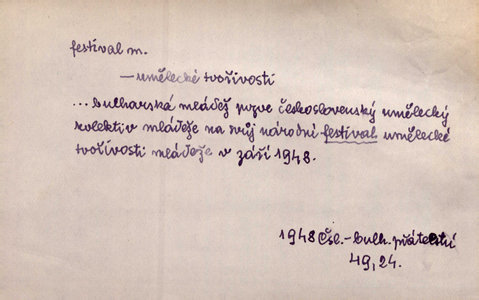 festival m.
— umělecké tvořivosti
... bulharská mládež pozve československý umělecký
kolektiv mládeže na svůj národní festival umělecké
tvořivosti mládeže v září 1948.
1948 Čsl.-bulh. přátelství
49, 24.